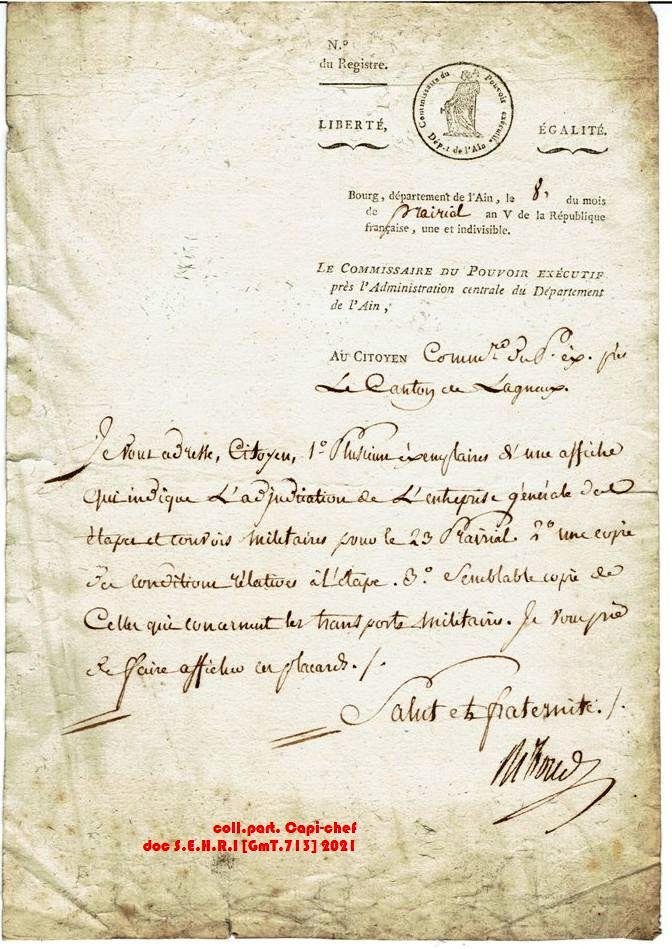 N.º
du Registre.
LIBERTÉ,
Commissaire du Pouvoir exécutif
Dép.t de l'Ain
ÉGALITÉ.
Bourg, département de l'Ain, le 8 du mois
de prairial an V de la République
française, une et indivisible.
LE COMMISSAIRE DU POUVOIR EXÉCUTIF
près l'Administration centrale du Département
de l'Ain,
AU CITOYEN Comm.re du P. éx. près
Le Canton de Lagneux.
Je vous adresse, Citoyen, 1º Plusieurs éxemplaires d'une affiche
qui indique L'adjudication de L'entreprise générale des
étapes et convois militaires pour le 23 Prairial. 2º une copie
des conditions rélatives à l'étape. 3º. Semblable copie de
Celles qui concernent les transports militaires. Je vous prie
de faire afficher ces placards ./.
Salut et fraternité ./.
Riboud
coll.part. Capi-chef
doc S.E.H.R.I [GmT.713] 2021